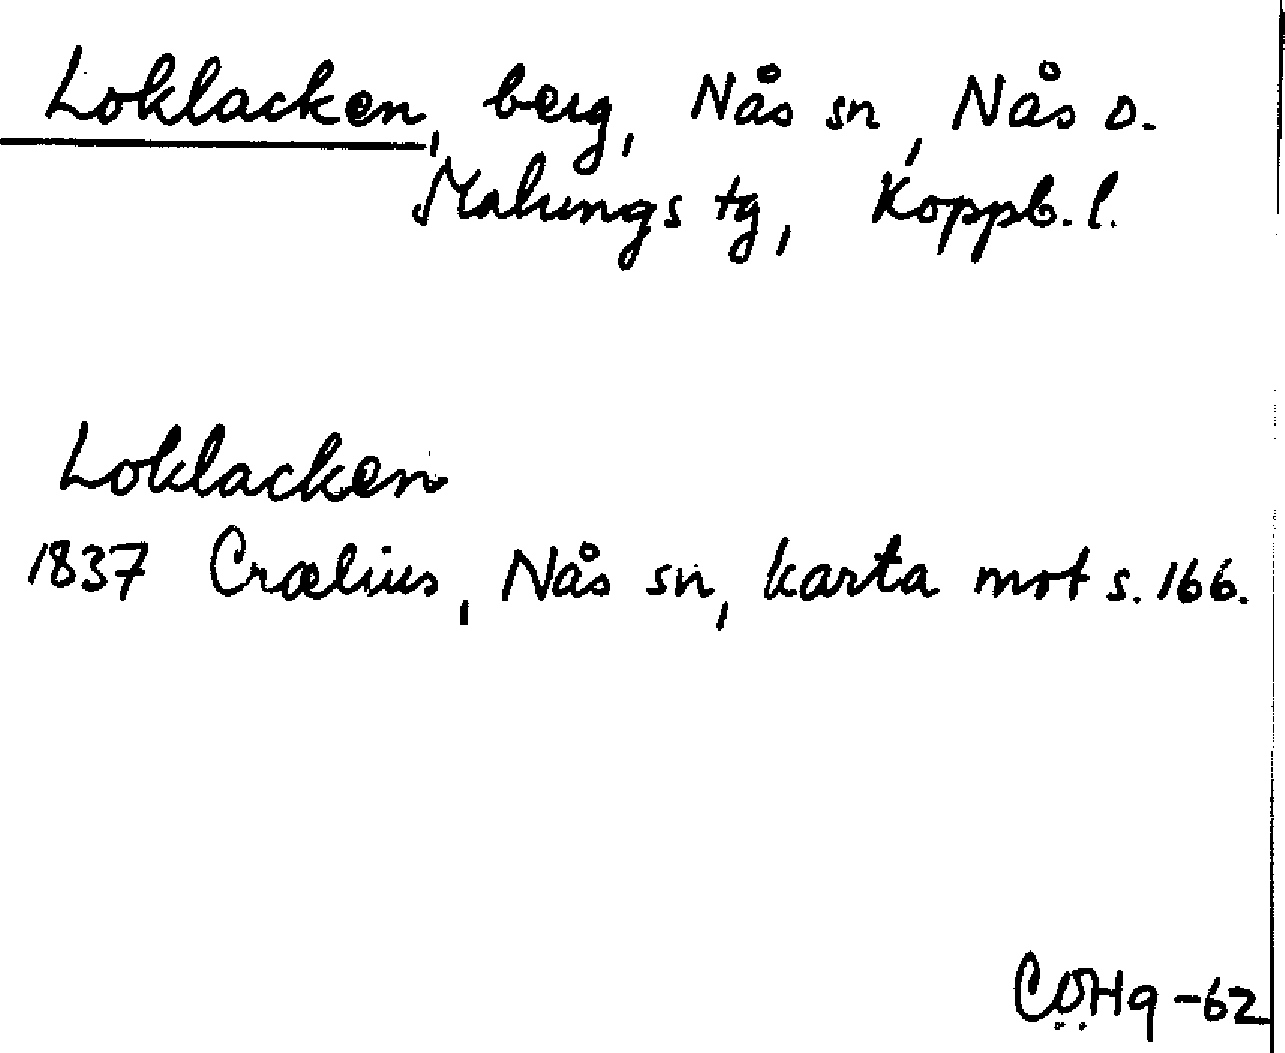 Loklacken, berg, Nås sn, Nås o.
Malungs tg, Koppb. l.
Loklacken
1837 Crælius, Nås sn, karta mot s. 166.
-62